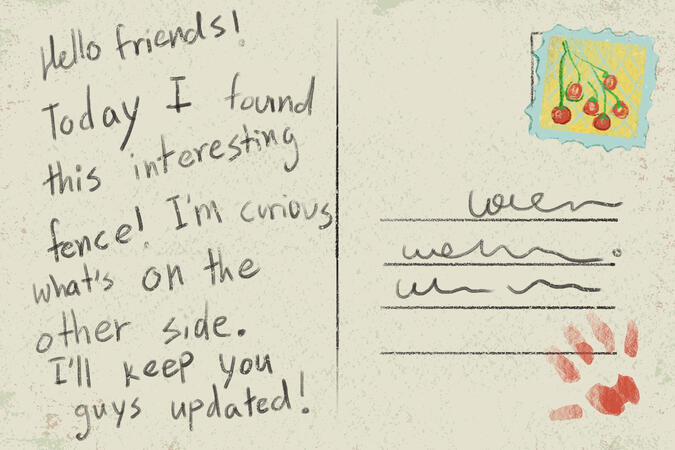 Hello friends!
Today I found
this interesting
fence! I'm curious
what's on the
other side.
I'll keep you
guys updated!